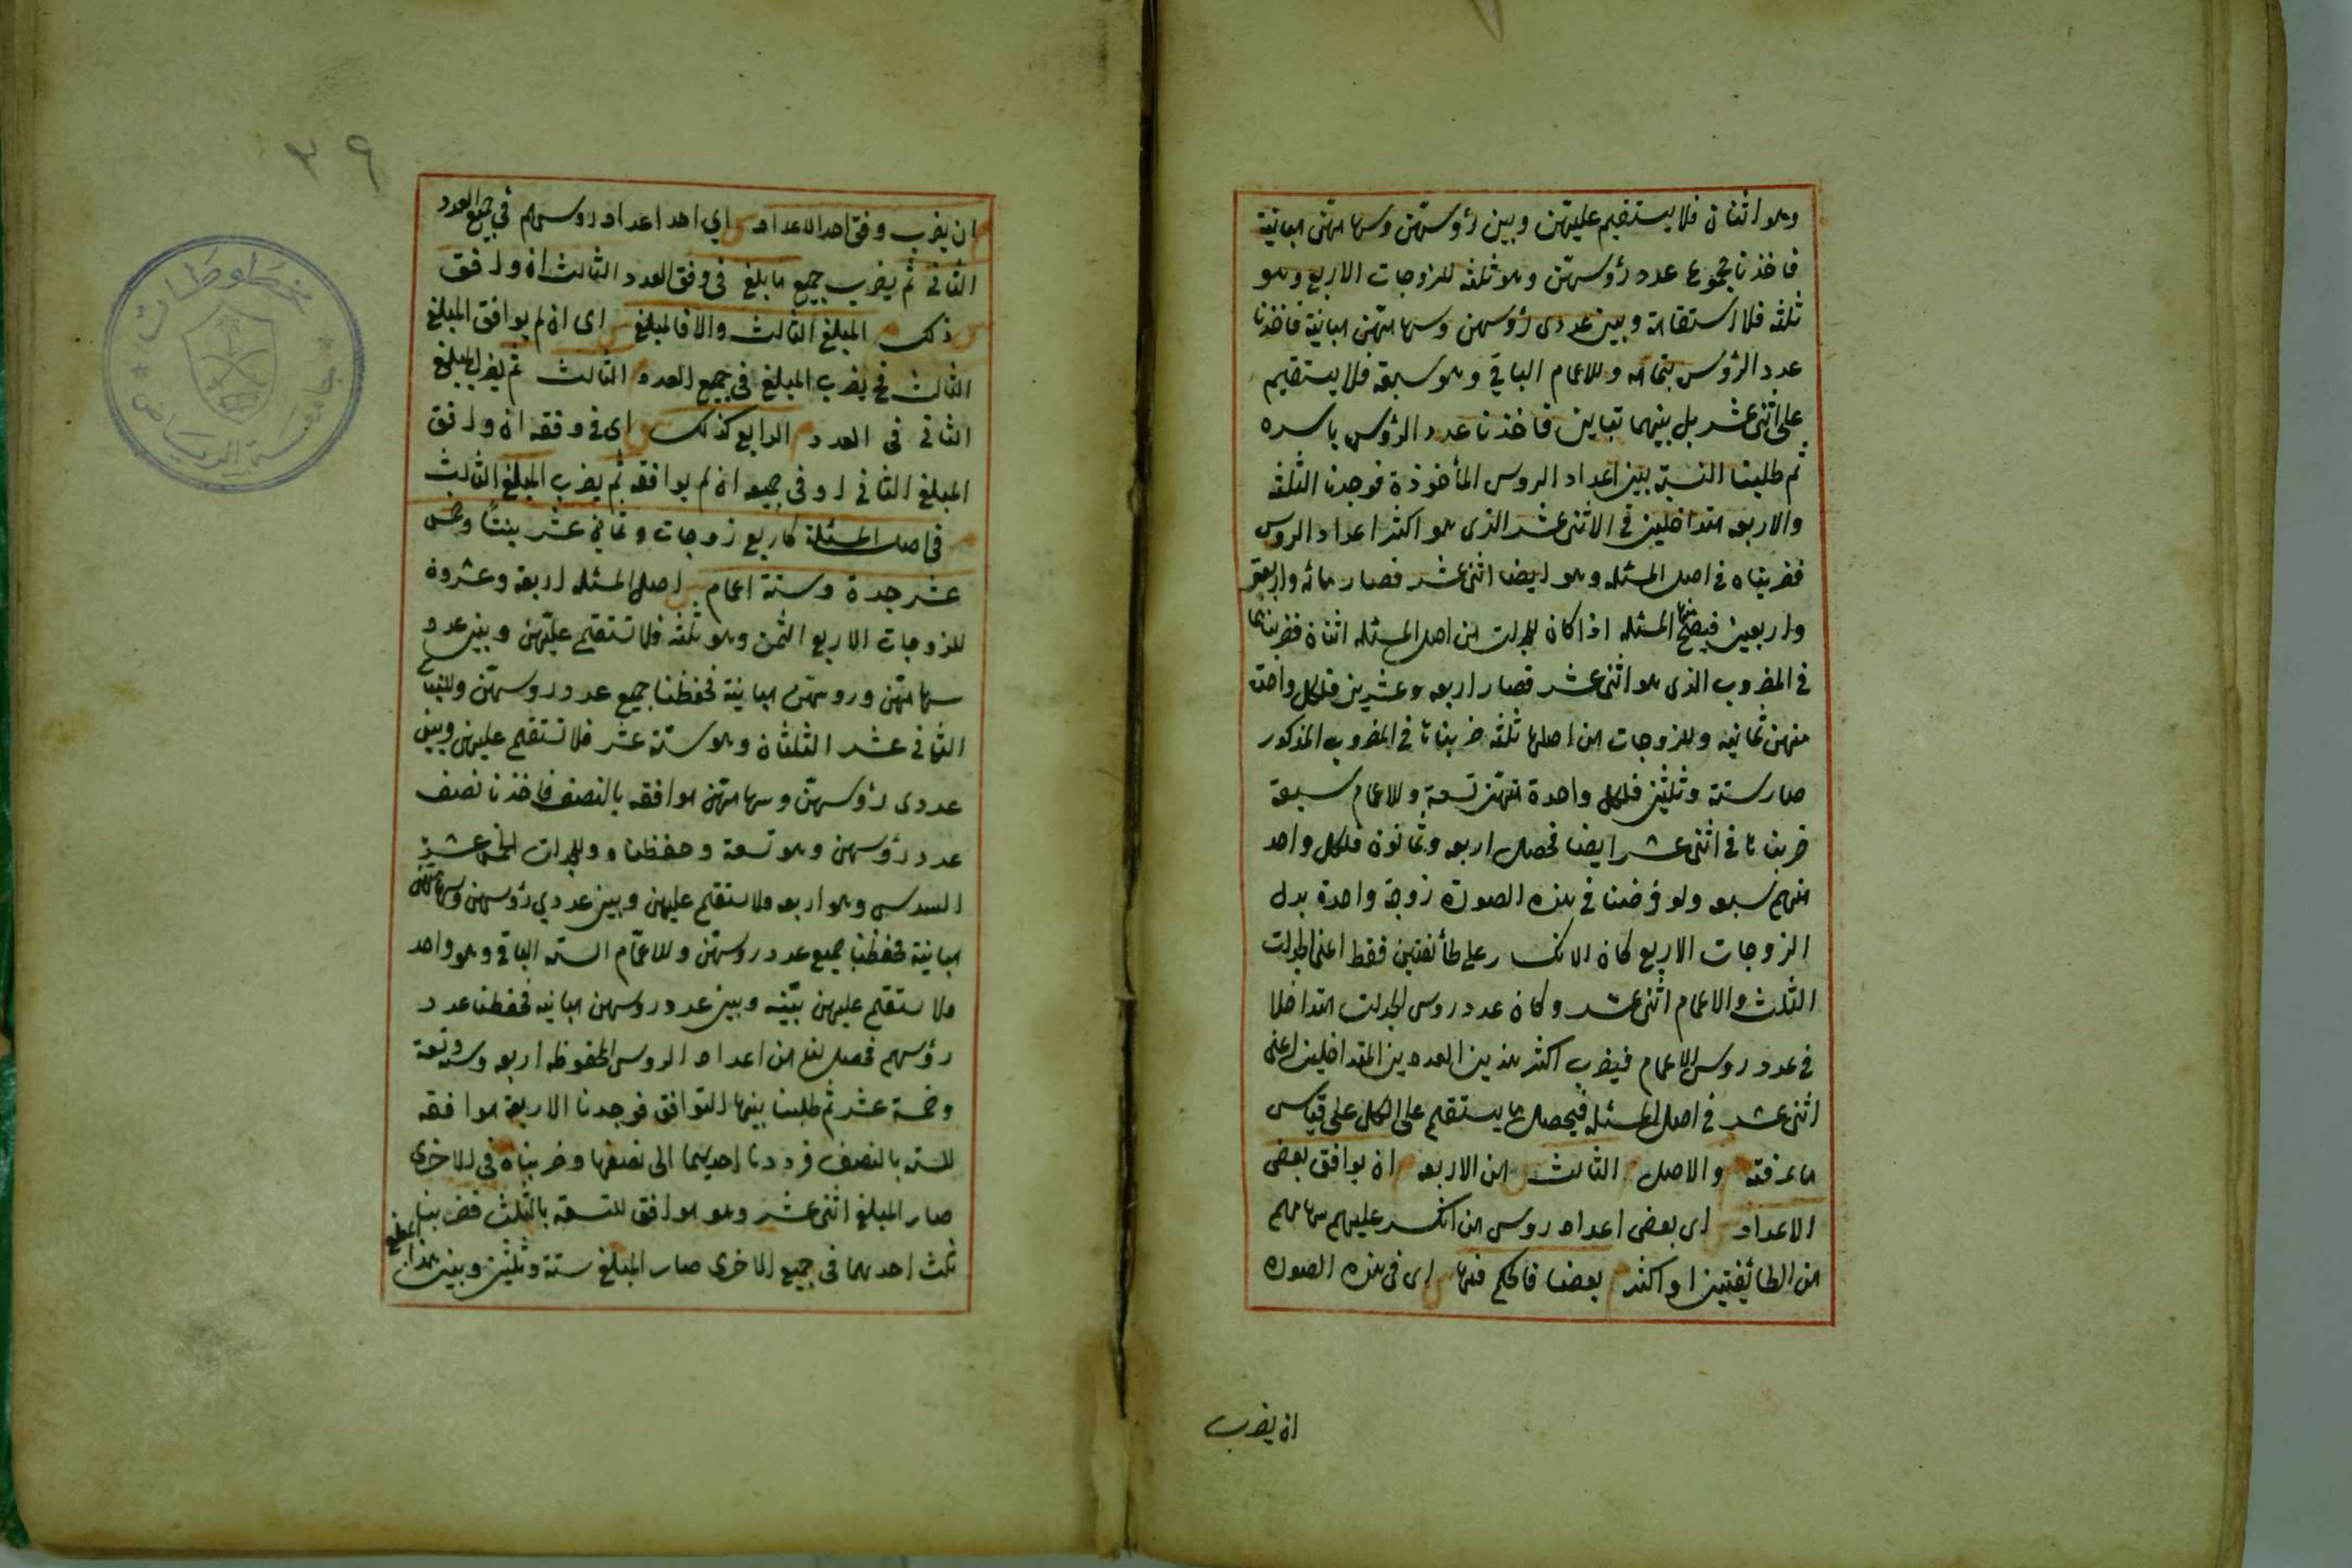 وهو اثنان فلا يستقيم عليهن وبين رؤسهن وسهامهن مباينة
فاخذنا مجموع عدد رؤسهن وهو ثلثه للزوجات الاربع وهو
ثلثه فلا استقامة وبين عددى رؤسهن وسهامهن مباينة فاخذنا
عدد الرؤس بتمامه وللاعمام الباقي وهو سبعة فلا يستقيم
على اثنى عشر بل بينهما تباين فاخذنا عدد الرؤس باسره
ثم طلبنا النسبة بين اعداد الروس المأخوذة فوجدنا الثلثه
والاربعه متداخلين في الاثنى عشر الذى هو اكثر اعداد الروس
فضربناه في اصل المسئله وهو ايضا اثنى عشر فصار مائه واربعة
واربعين فيصح منها المسئله اذا كان للجدات من اصل المسئله اثنان فضربناهما
في المضروب الذى هو اثنى عشر فصار اربعه وعشرين فلكل واحدة
منهن ثمانيه وللزوجات من اصلها ثلثه ضربناها في المضروب المذكور
صار ستة وثلثين فلكل واحدة منهن تسعة وللاعمام سبعة
ضربناها في اثنى عشر ايضا فحصل اربعه وثمانون فلكل واحد
منهم سبعه ولو فرضنا في هذه الصورة زوجة واحدة بدل
الزوجات الاربع كان الانكسار على طائفتين فقط اعنى الجدات
الثلث والاعمام اثنى عشر وكان عدد روس الجدات متداخلا
في عدد روس الاعمام فيضرب اكثر هذين العددين المتداخلين اعنى
اثنى عشر في اصل المسئله فيحصل ما يستقيم على الكل على قياس
ما عرفته والاصل الثالث من الاربعه ان يوافق بعض
الاعداد اى بعض اعداد روس من انكسر عليهم سهامهم
من الطائفتين او اكثر بعضا فالحكم فيها اى في هذه الصورة
ان يضرب
٣٩
ان يضرب وفق احد الاعداد اي احد اعداد روسهم في جميع العدد
الثاني ثم يضرب جميع ما بلغ في وفق العدد الثالث ان وافق
ذلك المبلغ الثالث والا فالمبلغ اى ان لم يوافق المبلغ
الثالث في يضرب المبلغ في جميع العدد الثالث ثم يضرب المبلغ
الثاني في العدد الرابع كذلك اى في وفقه ان وافق
المبلغ الثاني او في جميعه ان لم يوافقه ثم يضرب المبلغ الثالث
في اصل المسئلة كاربع زوجات وثماني عشر بنتًا وخمس
عشر جدة وستة اعمام اصل المسئله اربعة وعشرون
للزوجات الاربع الثمن وهو ثلثه فلا تستقيم عليهن وبين عدد
سهامهن وروسهن مباينة فحفظنا جميع عدد روسهن وللبنات
الثماني عشر الثلثان وهو ستة عشر فلا تستقيم عليهن وبين
عددى رؤسهن وسهامهن موافقه بالنصف فاخذنا نصف
عدد رؤسهن وهو تسعة وحفظناه وللجدات الخمس عشر
السدس وهو اربعه فلا يستقيم عليهن وبين عددي رؤسهن وسهامهن
مباينة فحفظنا جميع عدد روسهن وللاعمام السته الباقي وهو واحد
فلا يستقيم عليهن بينه وبين عدد روسهن مباينه فحفظنا عدد
رؤسهم فحصل لنا من اعداد الروس المحفوظه اربعه وسته وتسعة
وخمسة عشر ثم طلبنا بينها التوافق فوجدنا الاربعة موافقه
للسته بالنصف فرددنا احديهما الى نصفها وضربناه في الاخرى
صار المبلغ اثنى عشر وهو موافق للتسعة بالثلث فضربنا
ثلث احدهما في جميع الاخرى صار المبلغ ستة وثلثين وبين هذا المبلغ
مخطوطات
جامعة الرياض